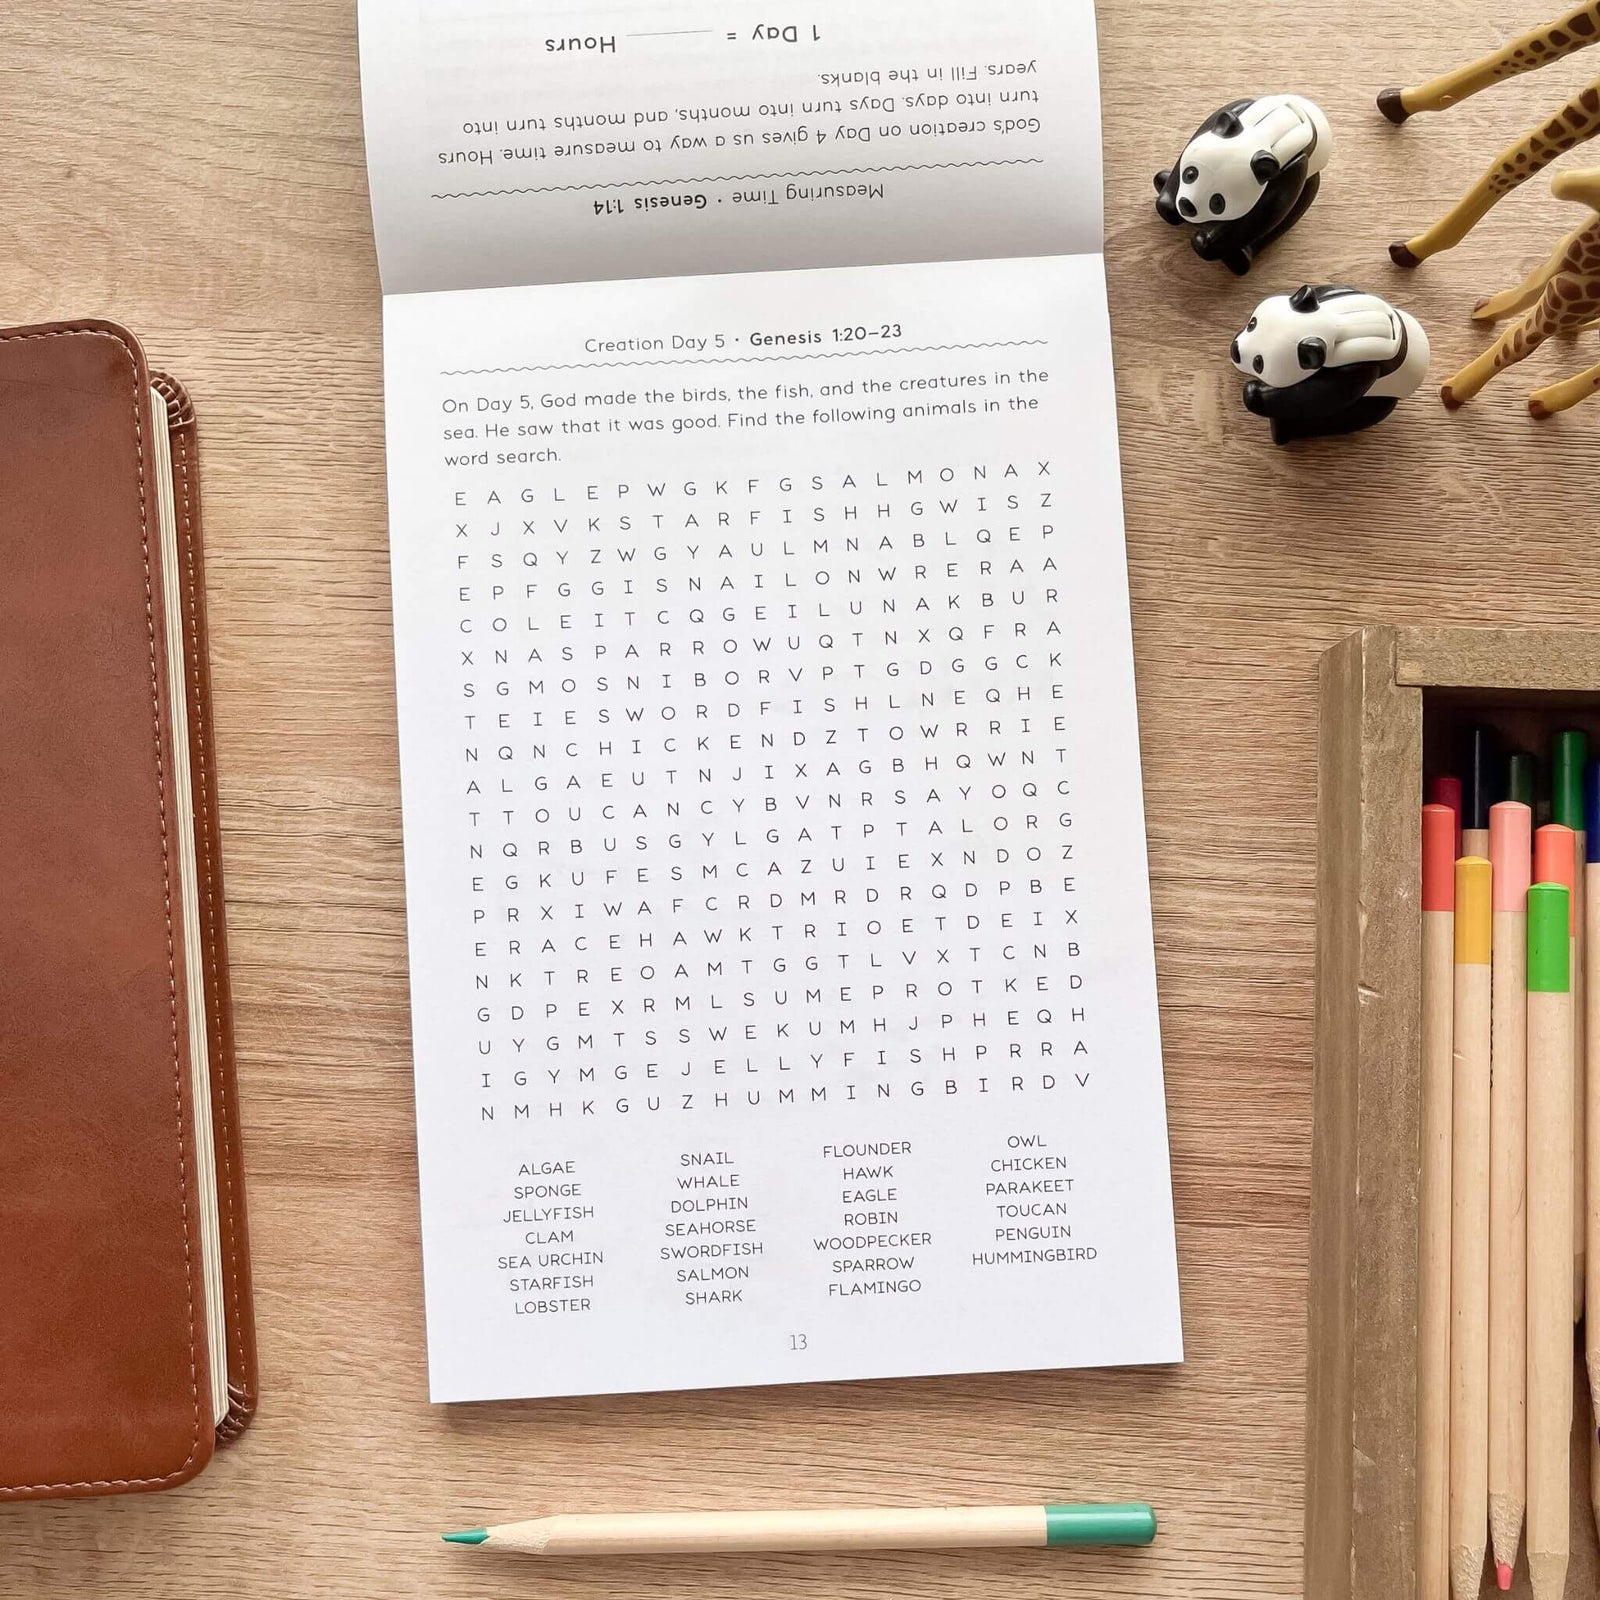 Measuring Time • Genesis 1:14
God's creation on Day 4 gives us a way to measure time. Hours
turn into days. Days turn into months, and months turn into
years. Fill in the blanks.
1 Day = ______ Hours
Creation Day 5 • Genesis 1:20–23
On Day 5, God made the birds, the fish, and the creatures in the
sea. He saw that it was good. Find the following animals in the
word search.
E A G L E P W G K F G S A L M O N A X
X J X V K S T A R F I S H H G W I S Z
F S Q Y Z W G Y A U L M N A B L Q E P
E P F G G I S N A I L O N W R E R A A
C O L E I T C Q G E I L U N A K B U R
X N A S P A R R O W U Q T N X Q F R A
S G M O S N I B O R V P T G D G G C K
T E I E S W O R D F I S H L N E Q H E
N Q N C H I C K E N D Z T O W R R I E
A L G A E U T N J I X A G B H Q W N T
T T O U C A N C Y B V N R S A Y O Q C
N Q R B U S G Y L G A T P T A L O R G
E G K U F E S M C A Z U I E X N D O Z
P R X I W A F C R D M R D R Q D P B E
E R A C E H A W K T R I O E T D E I X
N K T R E O A M T G G T L V X T C N B
G D P E X R M L S U M E P R O T K E D
U Y G M T S S W E K U M H J P H E Q H
I G Y M G E J E L L Y F I S H P R R A
N M H K G U Z H U M M I N G B I R D V
ALGAE
SPONGE
JELLYFISH
CLAM
SEA URCHIN
STARFISH
LOBSTER
SNAIL
WHALE
DOLPHIN
SEAHORSE
SWORDFISH
SALMON
SHARK
FLOUNDER
HAWK
EAGLE
ROBIN
WOODPECKER
SPARROW
FLAMINGO
OWL
CHICKEN
PARAKEET
TOUCAN
PENGUIN
HUMMINGBIRD
13